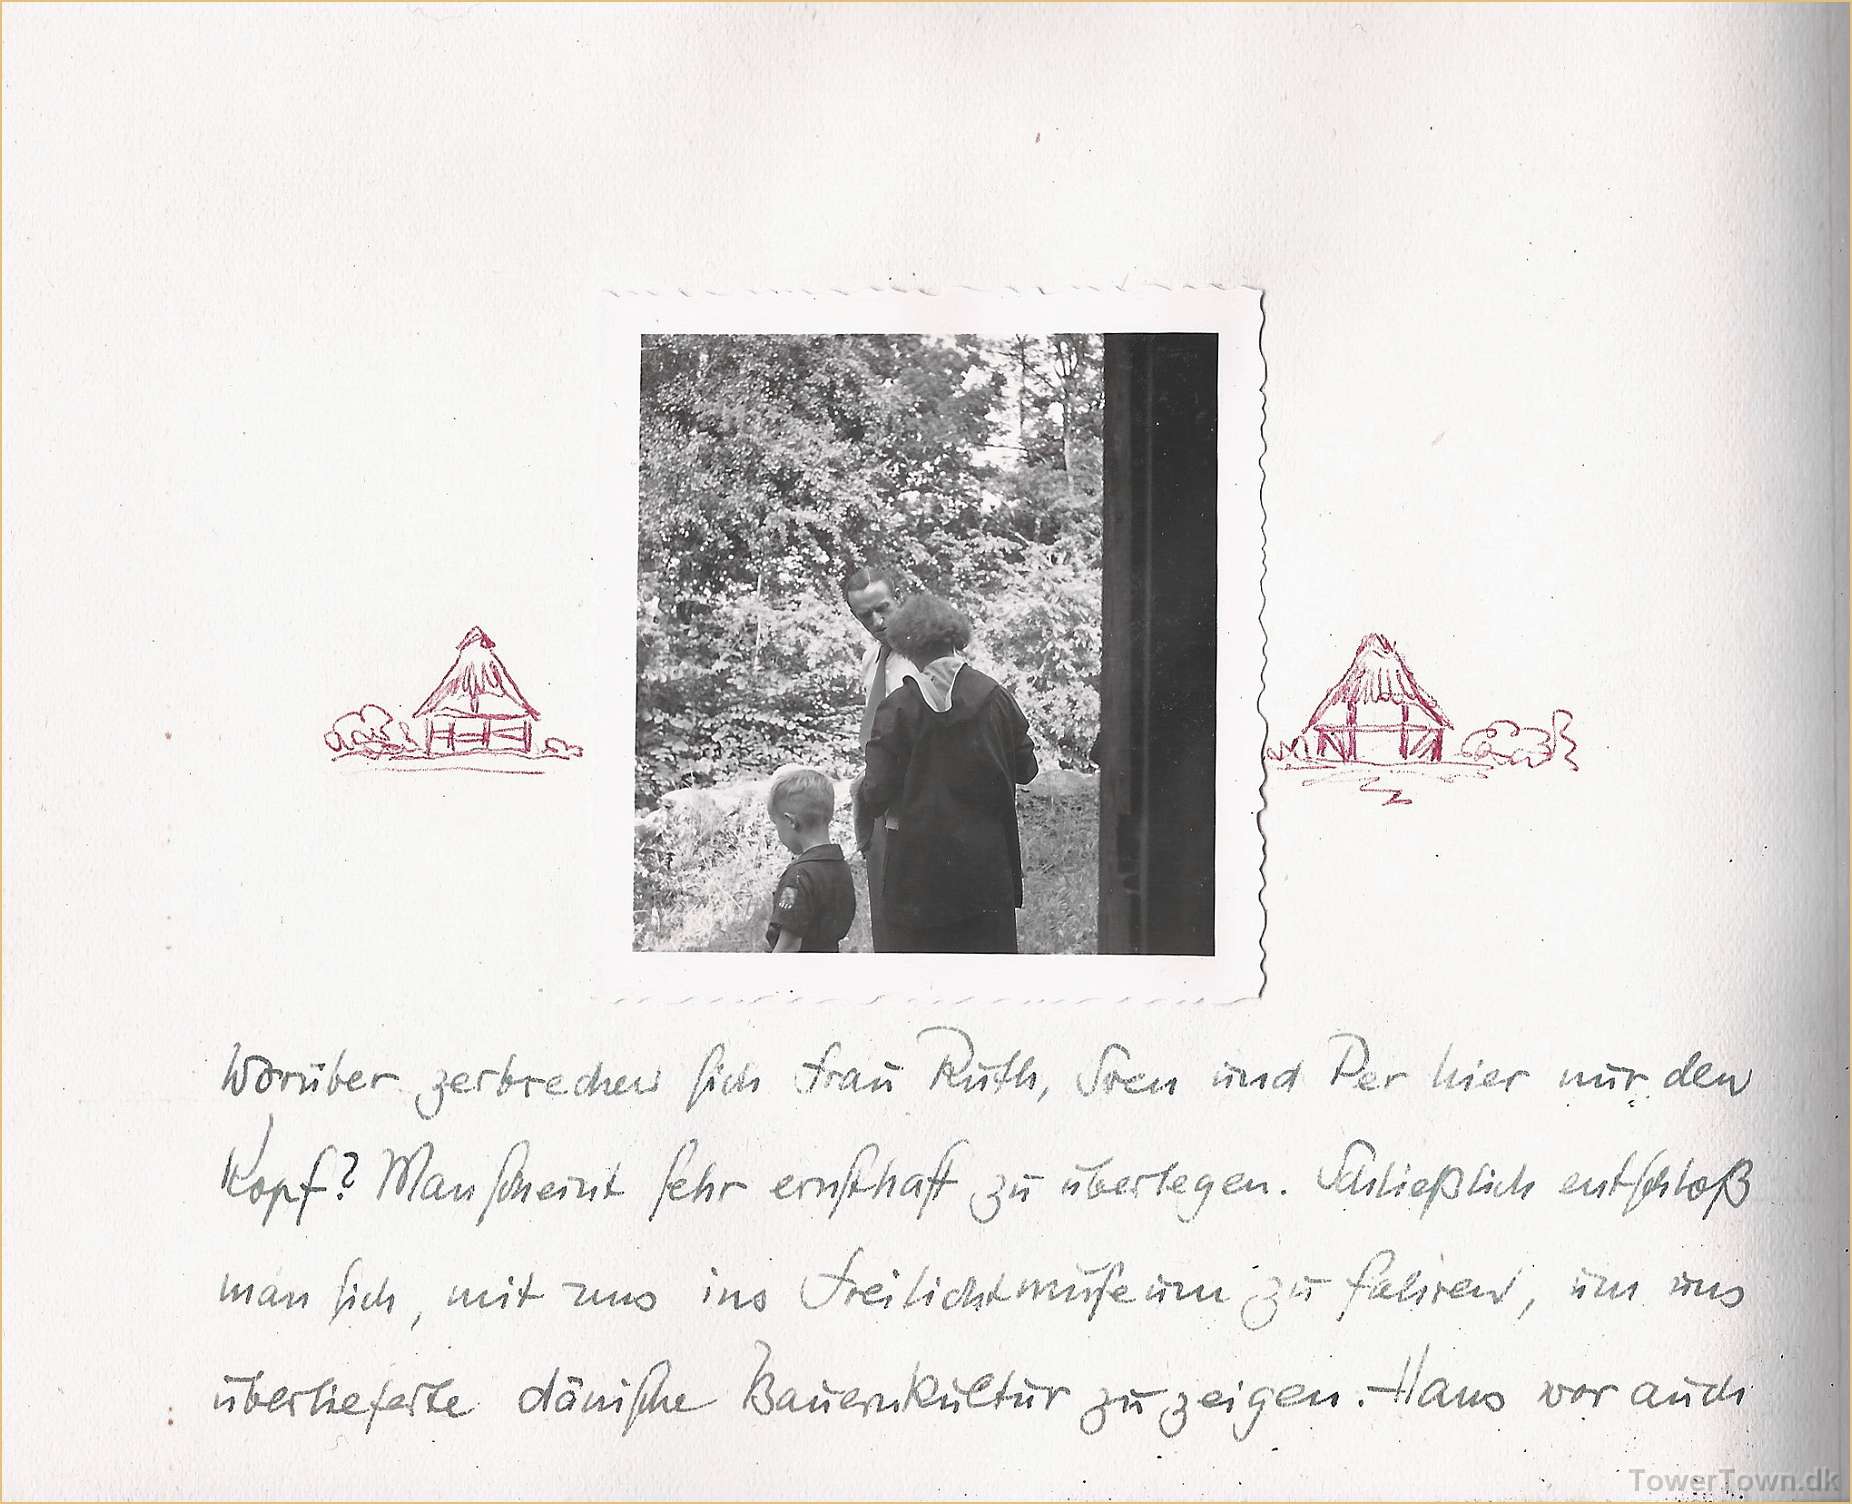 Worüber zerbrechen sich Frau Ruth, Sven und Per hier nur den
Kopf? Man scheint sehr ernsthaft zu überlegen. Schließlich entschloß
man sich, mit uns ins Freilichtmuseum zu fahren, um uns
überlieferte dänische Bauernkultur zu zeigen. Hans war auch
TowerTown.dk